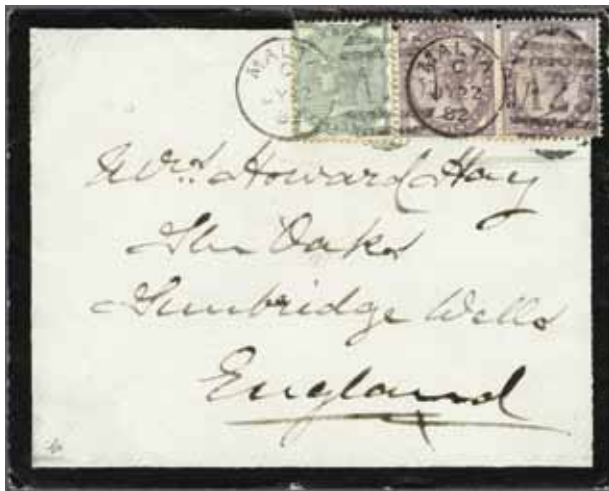 MALTA
MALTA
C
JY 22
82
A25
Mrs Howard Hay
The Oaks
Tunbridge Wells
England